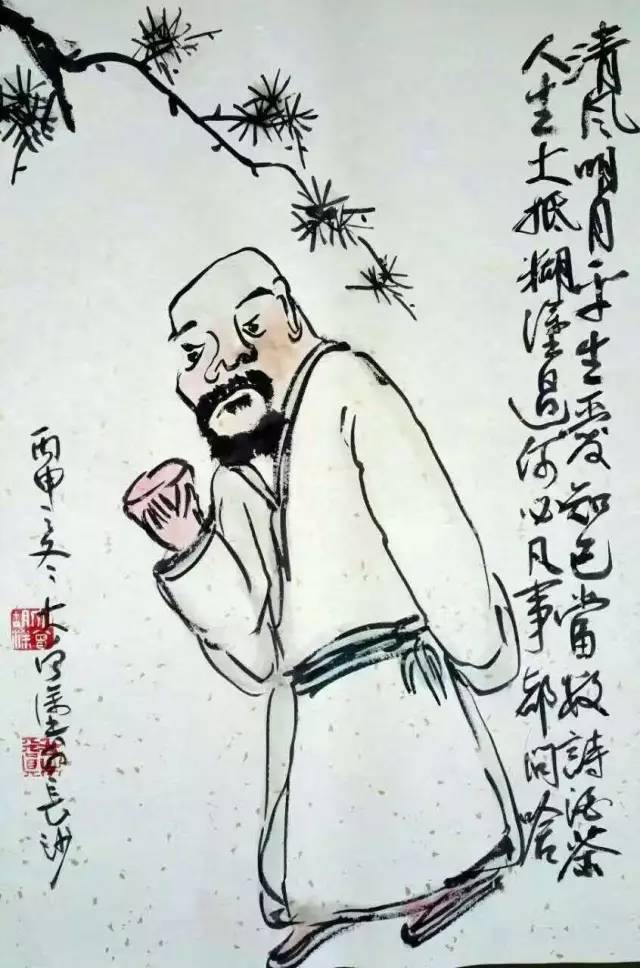 清风明月平生爱知己當数詩酒茶
人生大抵糊塗過何必凡事都问啥
丙申之冬 長沙